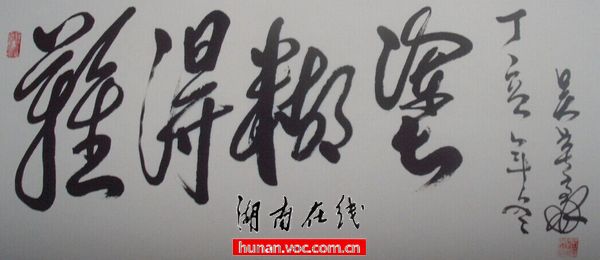 難得糊塗
丁亥年冬
吴
湖南在线
hunan.voc.com.cn